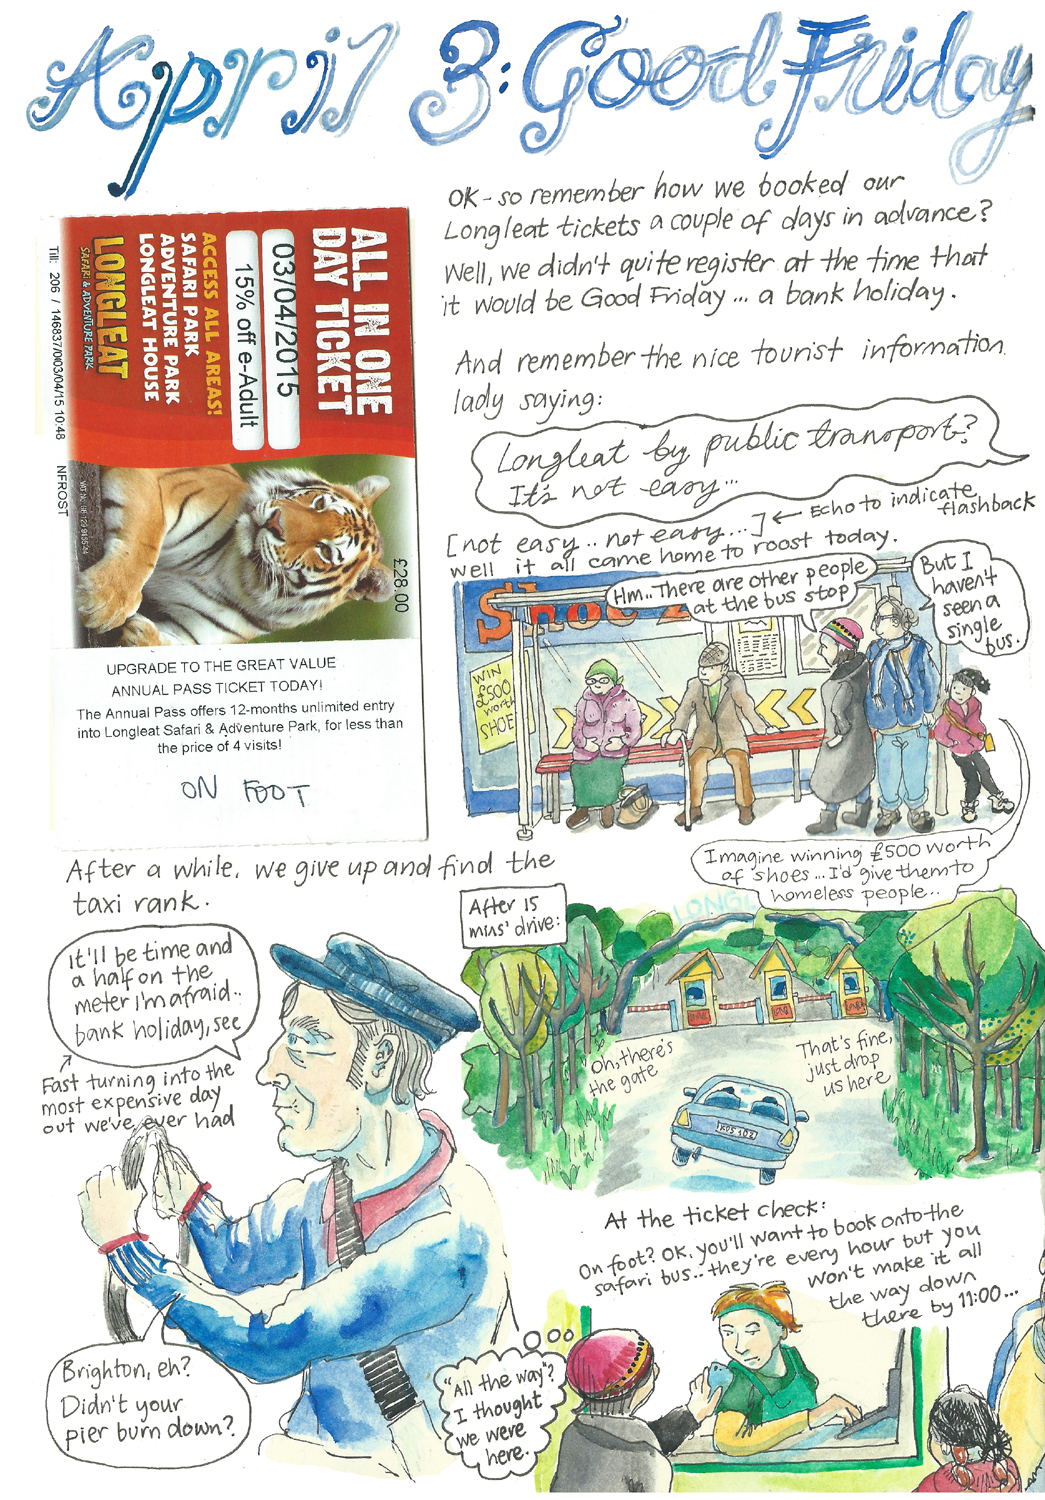 April 3: Good Friday
OK - so remember how we booked our
Longleat tickets a couple of days in advance?
Well, we didn't quite register at the time that
it would be Good Friday... a bank holiday.
And remember the nice tourist information
lady saying:
Longleat by public transport?
It's not easy...
[not easy.. not easy...] ← Echo to indicate
flashback
well it all came home to roost today.
ALL IN ONE
DAY TICKET
03/04/2015
15% off e-Adult
ACCESS ALL AREAS!
SAFARI PARK
ADVENTURE PARK
LONGLEAT HOUSE
LONGLEAT
SAFARI & ADVENTURE PARK
Till: 206 / 146837/003/04/15 10:48 NFROST
£28.00
UPGRADE TO THE GREAT VALUE
ANNUAL PASS TICKET TODAY!
The Annual Pass offers 12-months unlimited entry
into Longleat Safari & Adventure Park, for less than
the price of 4 visits!
ON FOOT
Shoe Z
Hm.. There are other people
at the bus stop
But I
haven't
seen a
single
bus.
WIN
£500
worth
SHOE
Imagine winning £500 worth
of shoes... I'd give them to
homeless people..
After a while, we give up and find the
taxi rank.
It'll be time and
a half on the
meter I'm afraid..
bank holiday, see
Fast turning into the
most expensive day
out we've ever had
Brighton, eh?
Didn't your
pier burn down?
After 15
mins' drive:
LONGL
Oh, there's
the gate
That's fine,
just drop
us here
At the ticket check:
On foot? OK, you'll want to book onto the
safari bus.. they're every hour but you
won't make it all
the way down
there by 11:00...
"All the way"?
I thought
we were
here.